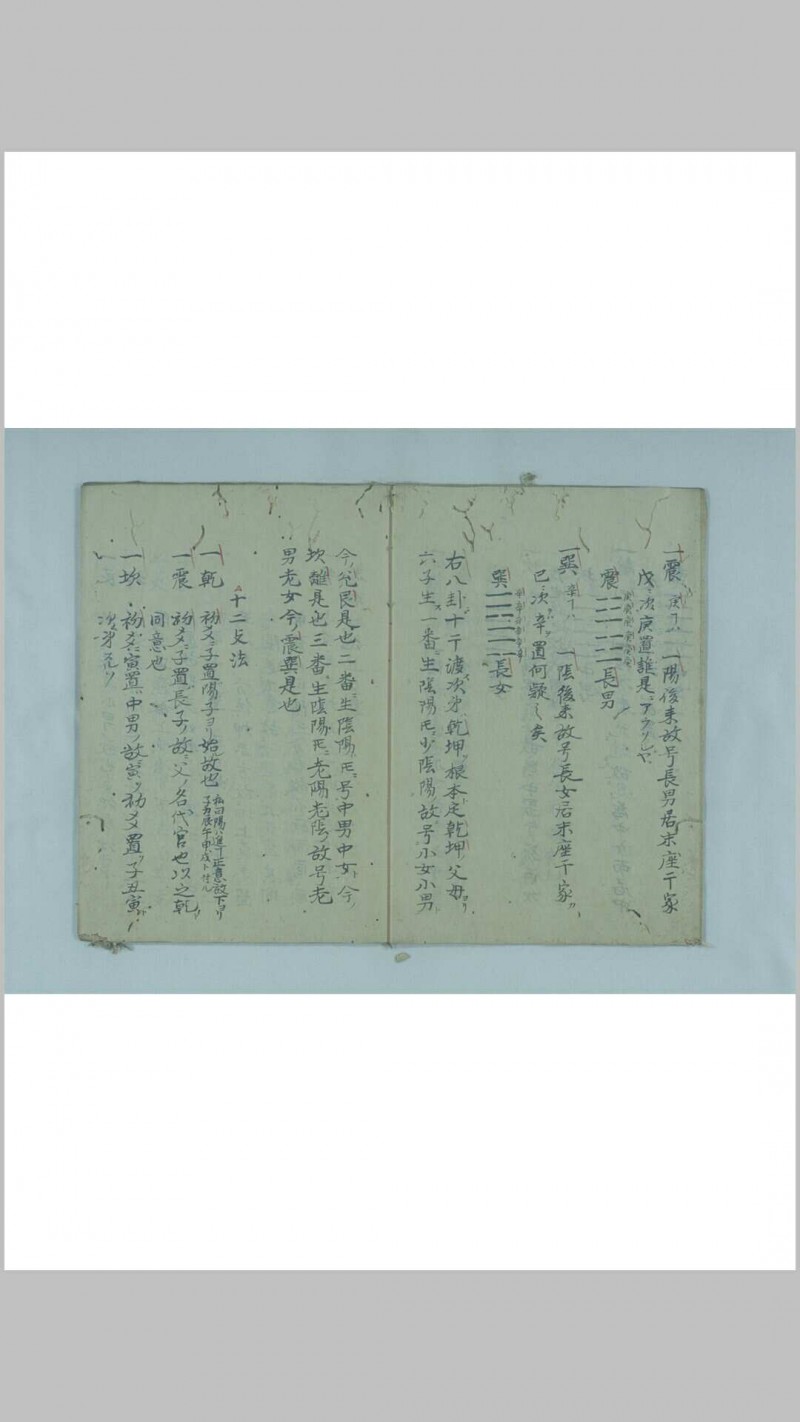 一震 庚下ハ 一陽後来故号長男居末座干家
戊ノ次庚置誰是アラソハンヤ
震 長男
一巽 辛下ハ 一陰後来故号長女居末座干家
已ノ次辛置何疑之矣
巽 長女
右八卦十干渡次第乾坤根本定乾坤父母
六子生一番生陰陽ヲ少陰陽故号小女小男
今ノ兌艮是也二番生陰陽ヲ号中男中女今ノ
坎離是也三番生陰陽ヲ老陽老陰故号老
男老女今ノ震巽是也
十二支法
一乾 初爻子置陽子ヨリ始ル故也
子寅辰午申戌ト
一震 初爻子置長子ノ故父ノ名代官也以之乾
同意也
一坎 初爻寅置中男ノ故寅初爻置子丑寅
次第